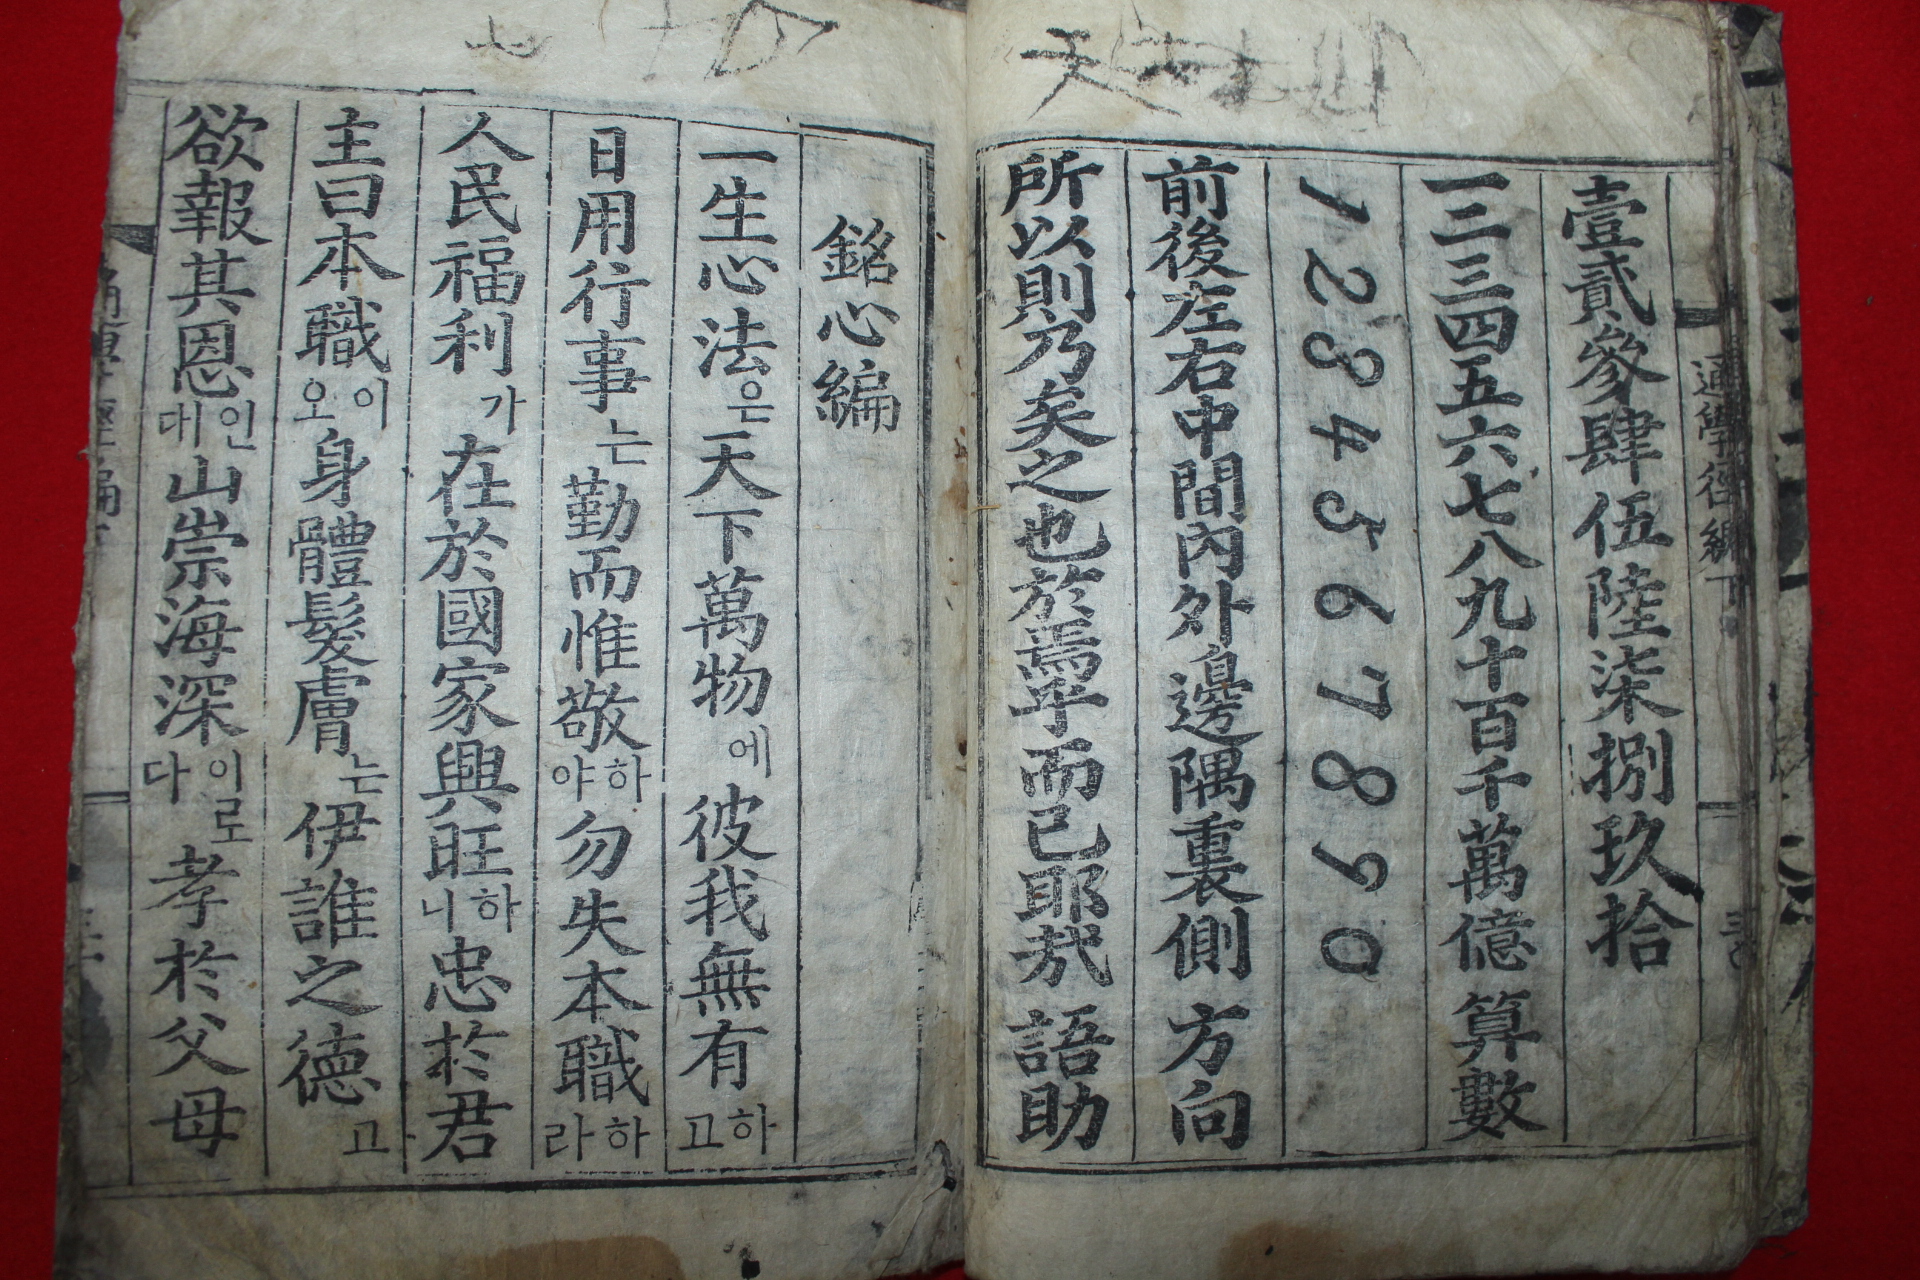 通學徑編下
壹貳參肆伍陸柒捌玖拾
一二三四五六七八九十百千萬億 算數
1234567890
前後左右中間內外邊隅裏側 方向
所以則乃矣之也於焉乎而已耶哉 語助
銘心編
一生心法은天下萬物에彼我無有하고
日用行事는勤而惟敬하야勿失本職하라
人民福利가在於國家興旺하니忠於君
主曰本職이오身體髮膚는伊誰之德고
欲報其恩인대山崇海深이로다孝於父母